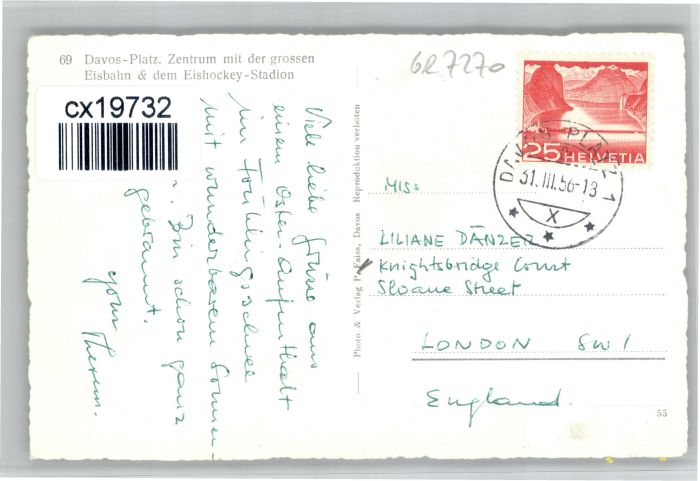 69 Davos-Platz. Zentrum mit der grossen
Eisbahn & dem Eishockey-Stadion
cx19732
GR7270
25 HELVETIA
DAVOS PLATZ 1
31.III.56-13
X
Viele liebe Grüsse aus
einem Oster-Aufenthalt
im Frühlingsschnee
mit wunderbarem Sonnen-
. Bin schon ganz
gebrannt.
your
Photo & Verlag P. Faiss, Davos Reproduktion verboten
MISS
LILIANE DÄNZER
Knightsbridge Court
Sloane Street
LONDON SW1
England.
55